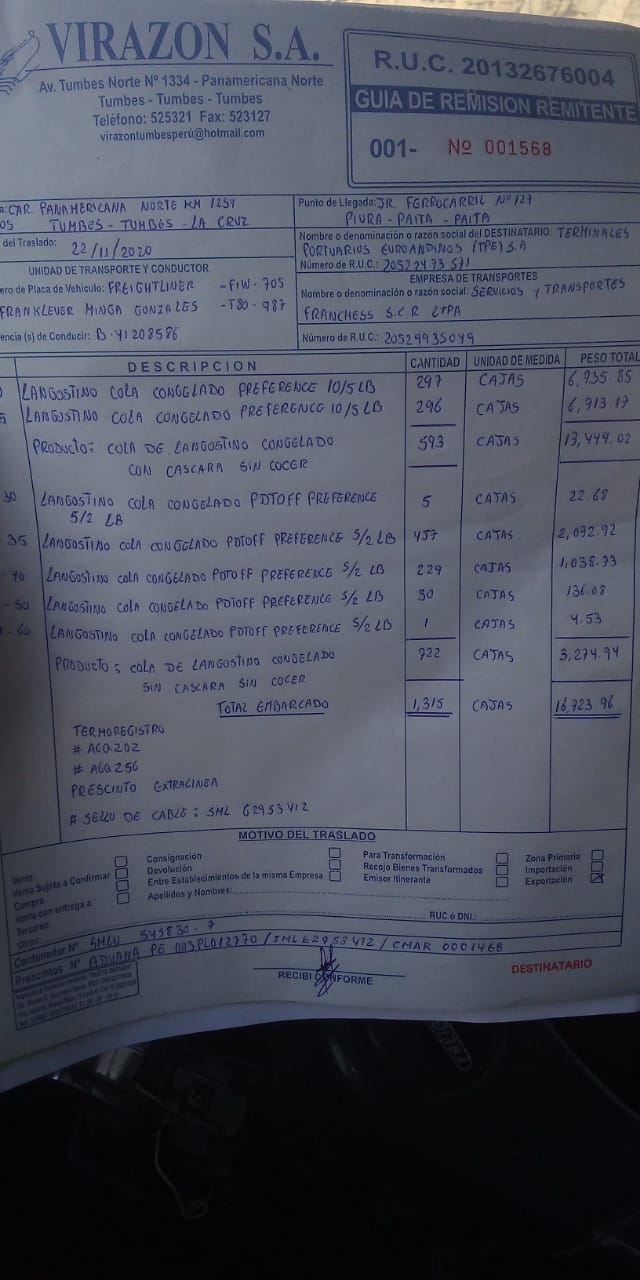 VIRAZON S.A.
Av. Tumbes Norte Nº 1334 - Panamericana Norte
Tumbes - Tumbes - Tumbes
Teléfono: 525321 Fax: 523127
virazontumbesperú@hotmail.com
R.U.C. 20132676004
GUIA DE REMISION REMITENTE
001- Nº 001568
CAR. PANAMERICANA NORTE KM 1254
TUMBES - TUMBES - LA CRUZ
Punto de Llegada: JR. FERROCARRIL Nº 127
PIURA - PAITA - PAITA
del Traslado: 22/11/2020
Nombre o denominación o razón social del DESTINATARIO: TERMINALES
PORTUARIOS EUROANDINOS (TPE) S.A
Número de R.U.C.: 20522473571
UNIDAD DE TRANSPORTE Y CONDUCTOR
ero de Placa de Vehículo: FREIGHTLINER - F1W - 705
FRANKLEVER MINGA GONZALES - T80 - 987
encia (s) de Conducir: B-41208586
EMPRESA DE TRANSPORTES
Nombre o denominación o razón social: SERVICIOS Y TRANSPORTES
FRANCHESS S.C.R LTDA
Número de R.U.C.: 20529935049
DESCRIPCION CANTIDAD UNIDAD DE MEDIDA PESO TOTAL
LANGOSTINO COLA CONGELADO PREFERENCE 10/5 LB 297 CAJAS 6,735.85
5 LANGOSTINO COLA CONGELADO PREFERENCE 10/5 LB 296 CAJAS 6,713.17
PRODUCTO: COLA DE LANGOSTINO CONGELADO 593 CAJAS 13,449.02
CON CASCARA SIN COCER
30 LANGOSTINO COLA CONGELADO PDTOFF PREFERENCE 5 CAJAS 22.68
5/2 LB
35 LANGOSTINO COLA CONGELADO PDTOFF PREFERENCE 5/2 LB 457 CAJAS 2,072.92
- 40 LANGOSTINO COLA CONGELADO PDTOFF PREFERENCE 5/2 LB 229 CAJAS 1,038.73
- 50 LANGOSTINO COLA CONGELADO PDTOFF PREFERENCE 5/2 LB 30 CAJAS 136.08
- 60 LANGOSTINO COLA CONGELADO PDTOFF PREFERENCE 5/2 LB 1 CAJAS 4.53
PRODUCTO: COLA DE LANGOSTINO CONGELADO 722 CAJAS 3,274.94
SIN CASCARA SIN COCER
TOTAL EMBARCADO 1,315 CAJAS 16,723.96
TERMOREGISTRO
# AGQ202
# AGQ256
PRESCINTO EXTRALINEA
# SELLO DE CABLE: SML 62953412
MOTIVO DEL TRASLADO
Venta
Venta Sujeta a Confirmar
Compra
Venta con entrega a
Terceros
Otros
Consignación
Devolución
Entre Establecimientos de la misma Empresa
Apellidos y Nombres:
Para Transformación
Recojo Bienes Transformados
Emisor Itinerante
Zona Primaria
Importación
Exportación
RUC ó DNI.:
Contenedor Nº SMLU 543830-7
Prescintos Nº ADUANA PE 003PL012770 / SML 62953412 / CMAR 0001468
RECIBI CONFORME
DESTINATARIO